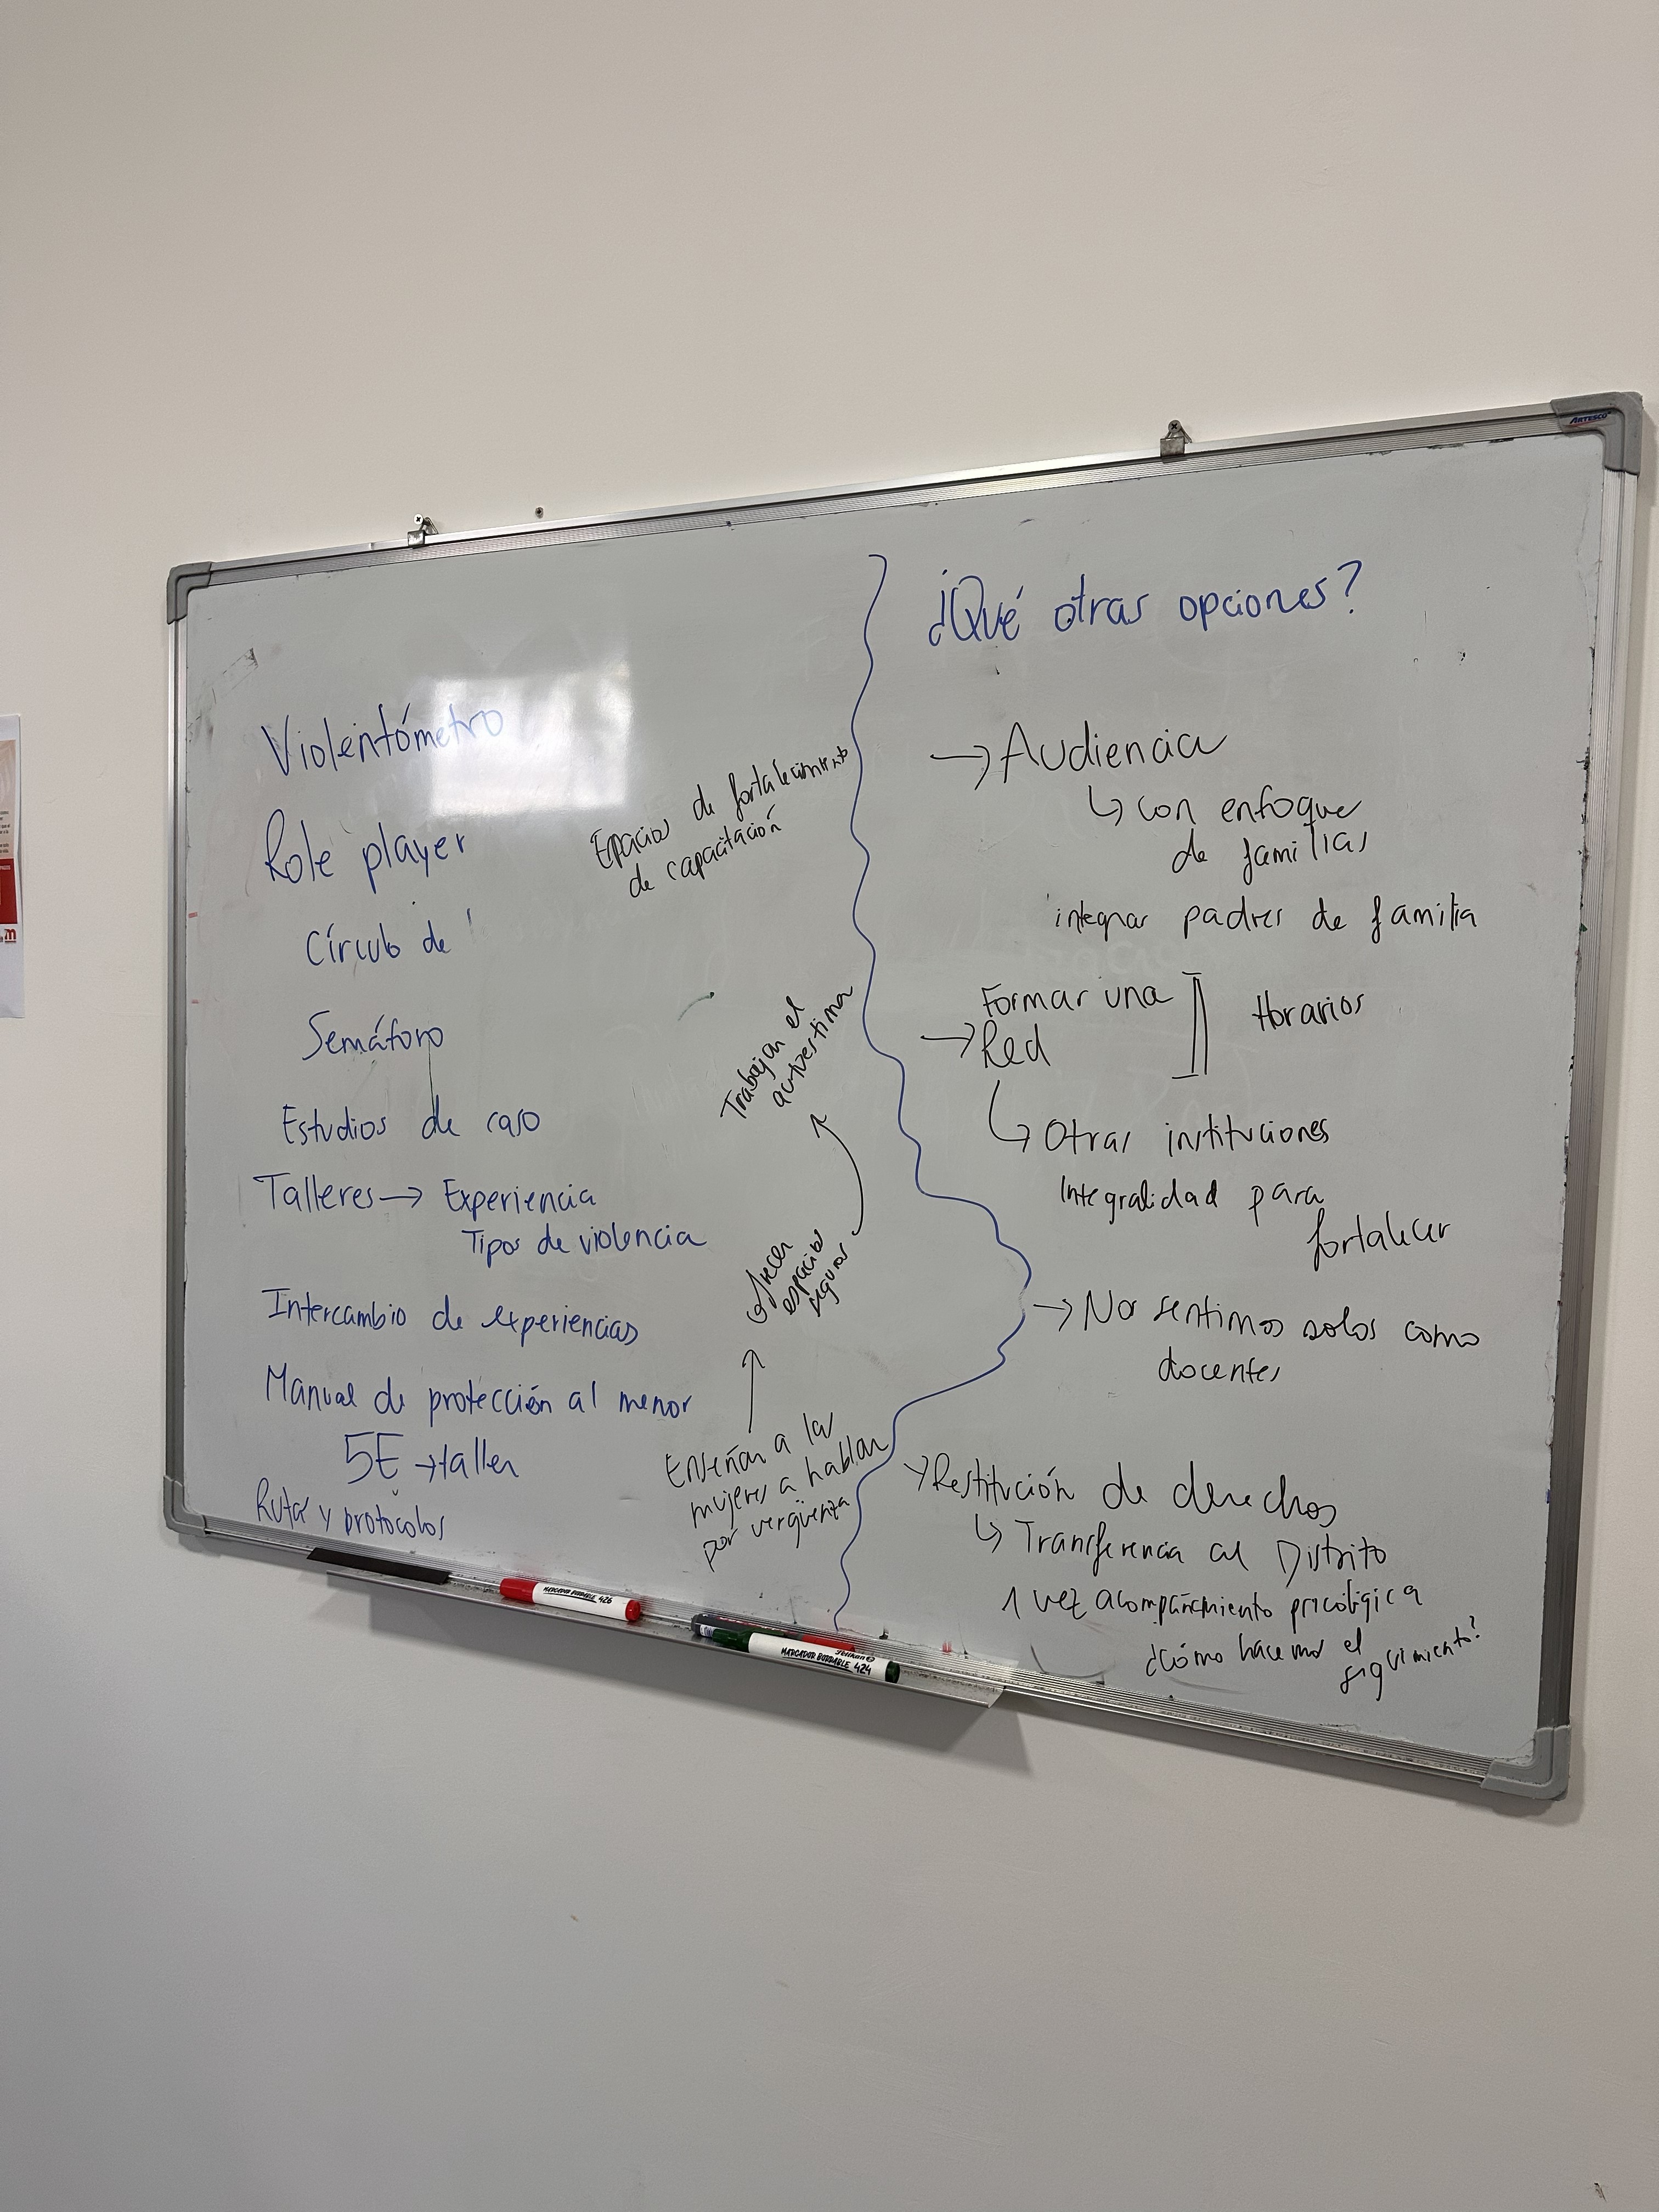 Violentómetro
Role player
Círculo de
Semáforo
Estudios de caso
Talleres → Experiencia
Tipos de violencia
Intercambio de experiencias
Manual de protección al menor
5E → taller
Rutas y protocolos
Espacios de fortalecimiento
de capacitación
Trabajan el
autoestima
ofrecer
espacios
seguros
Enseñan a las
mujeres a hablar
por vergüenza
¿Qué otras opciones?
→ Audiencia
↳ con enfoque
de familias
integrar padres de familia
Formar una
→ Red
Horarios
↳ Otras instituciones
Integralidad para
fortalecer
→ No sentirnos solos como
docentes
→ Restitución de derechos
↳ Transferencia al Distrito
1 vez acompañamiento psicológica
¿Cómo hacemos el
seguimiento?
ARTESCO
MARCADOR BORRABLE 426
Pelikan
MARCADOR BORRABLE 424